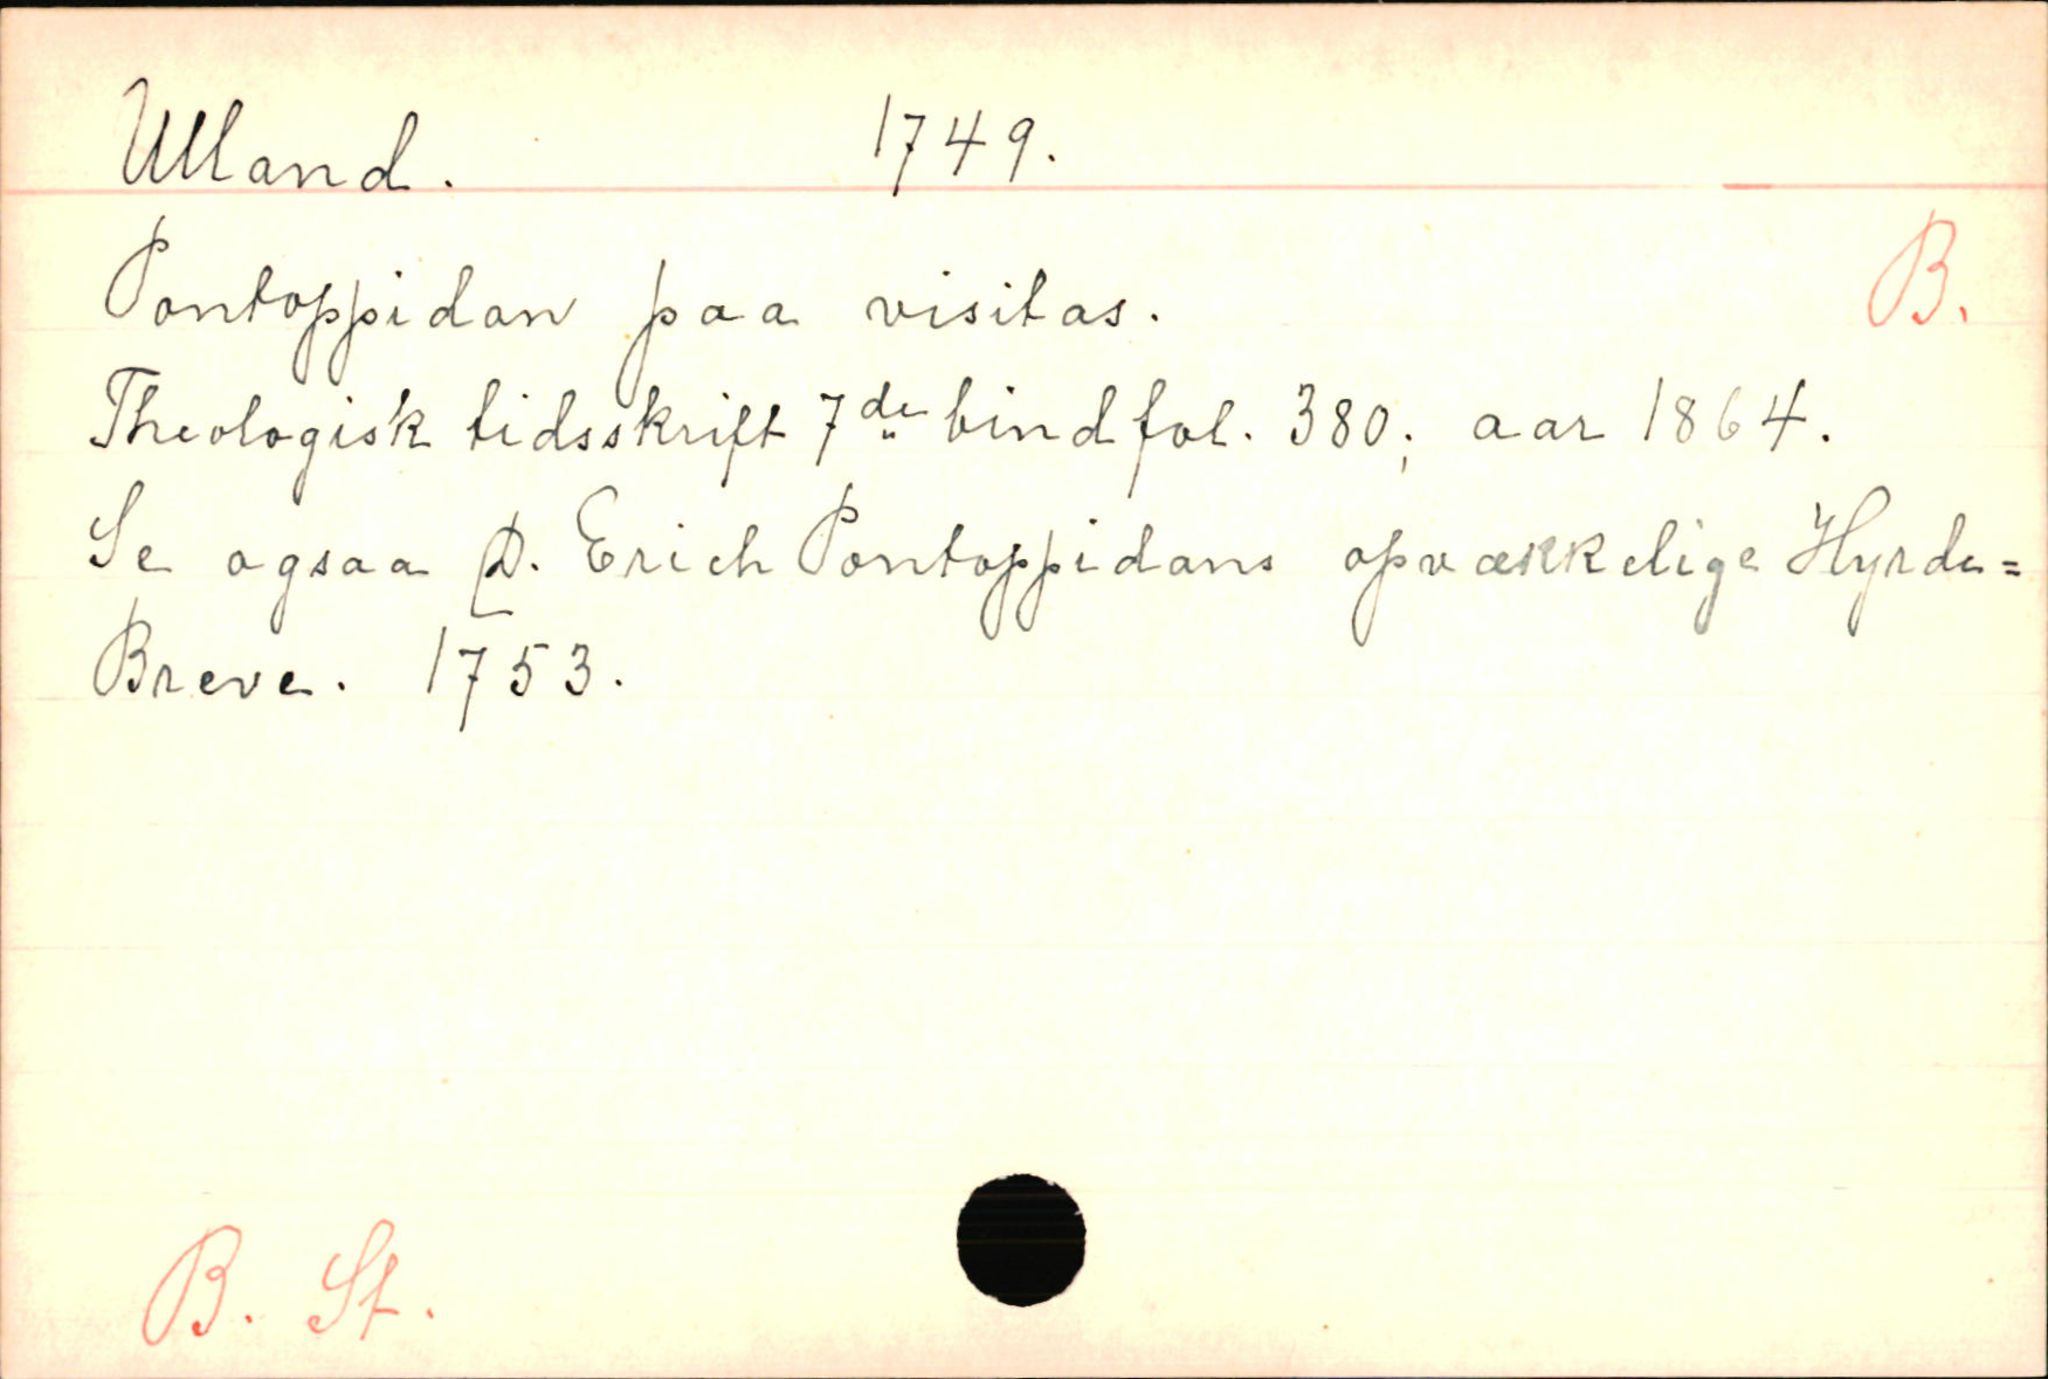 Ulland. 1749.
Pontoppidan paa visitas. B.
Theologisk tidsskrift 7de bind fol. 380; aar 1864.
Se ogsaa D. Erich Pontoppidans opvækkelige Hyrde=
Breve. 1753.
B. St.